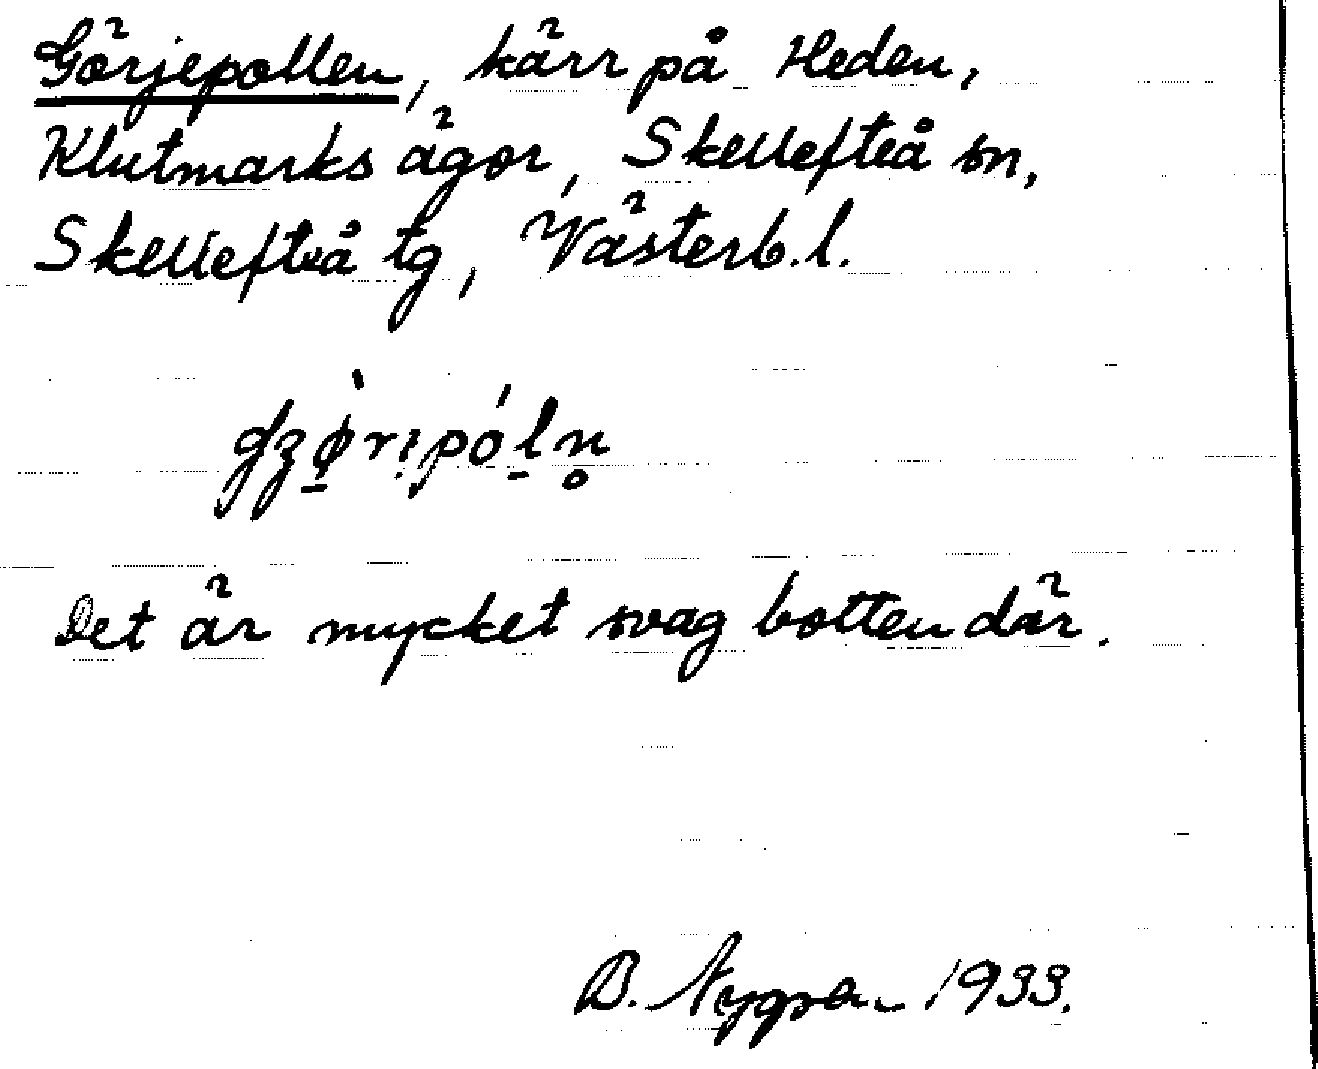 Görjepollen, kärr på Heden,
Klutmarks ägor, Skellefteå sn,
Skellefteå tg, Västerb. l.
Det är mycket svag botten där.
B. Nygren 1933.